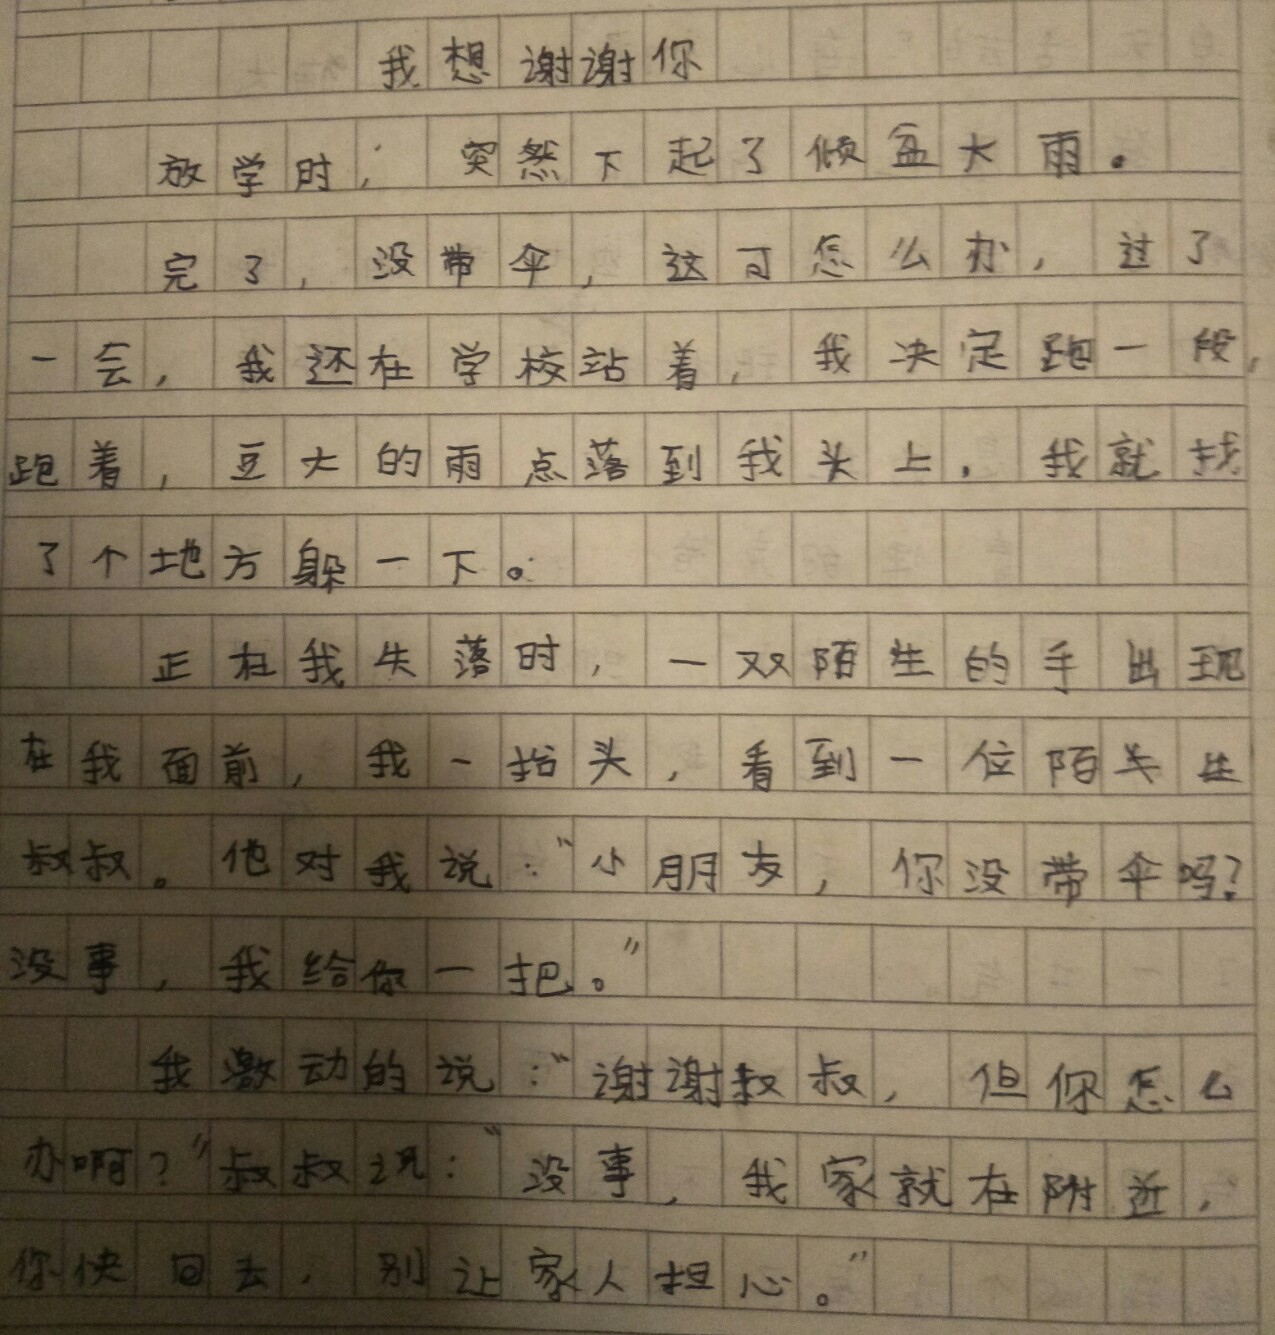 我想谢谢你
放学时，突然下起了倾盆大雨。
完了，没带伞，这可怎么办，过了
一会，我还在学校站着，我决定跑一段，
跑着，豆大的雨点落到我头上，我就找
了个地方躲一下。
正在我失落时，一双陌生的手出现
在我面前，我一抬头，看到一位陌生
叔叔。他对我说：“小朋友，你没带伞吗？
没事，我给你一把。”
我激动的说：“谢谢叔叔，但你怎么
办啊？”叔叔说：“没事，我家就在附近，
你快回去，别让家人担心。”